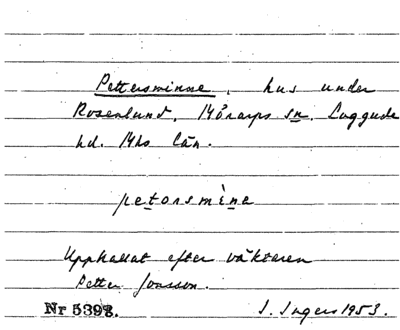 Pettersminne, hus under
Rosenlund, Mörarps sn. Luggude
hd. Mhs län.
petərsmène
Upphallat efter väktaren
Petter Jonsson.
Nr 5398. I. Ingers 1953.